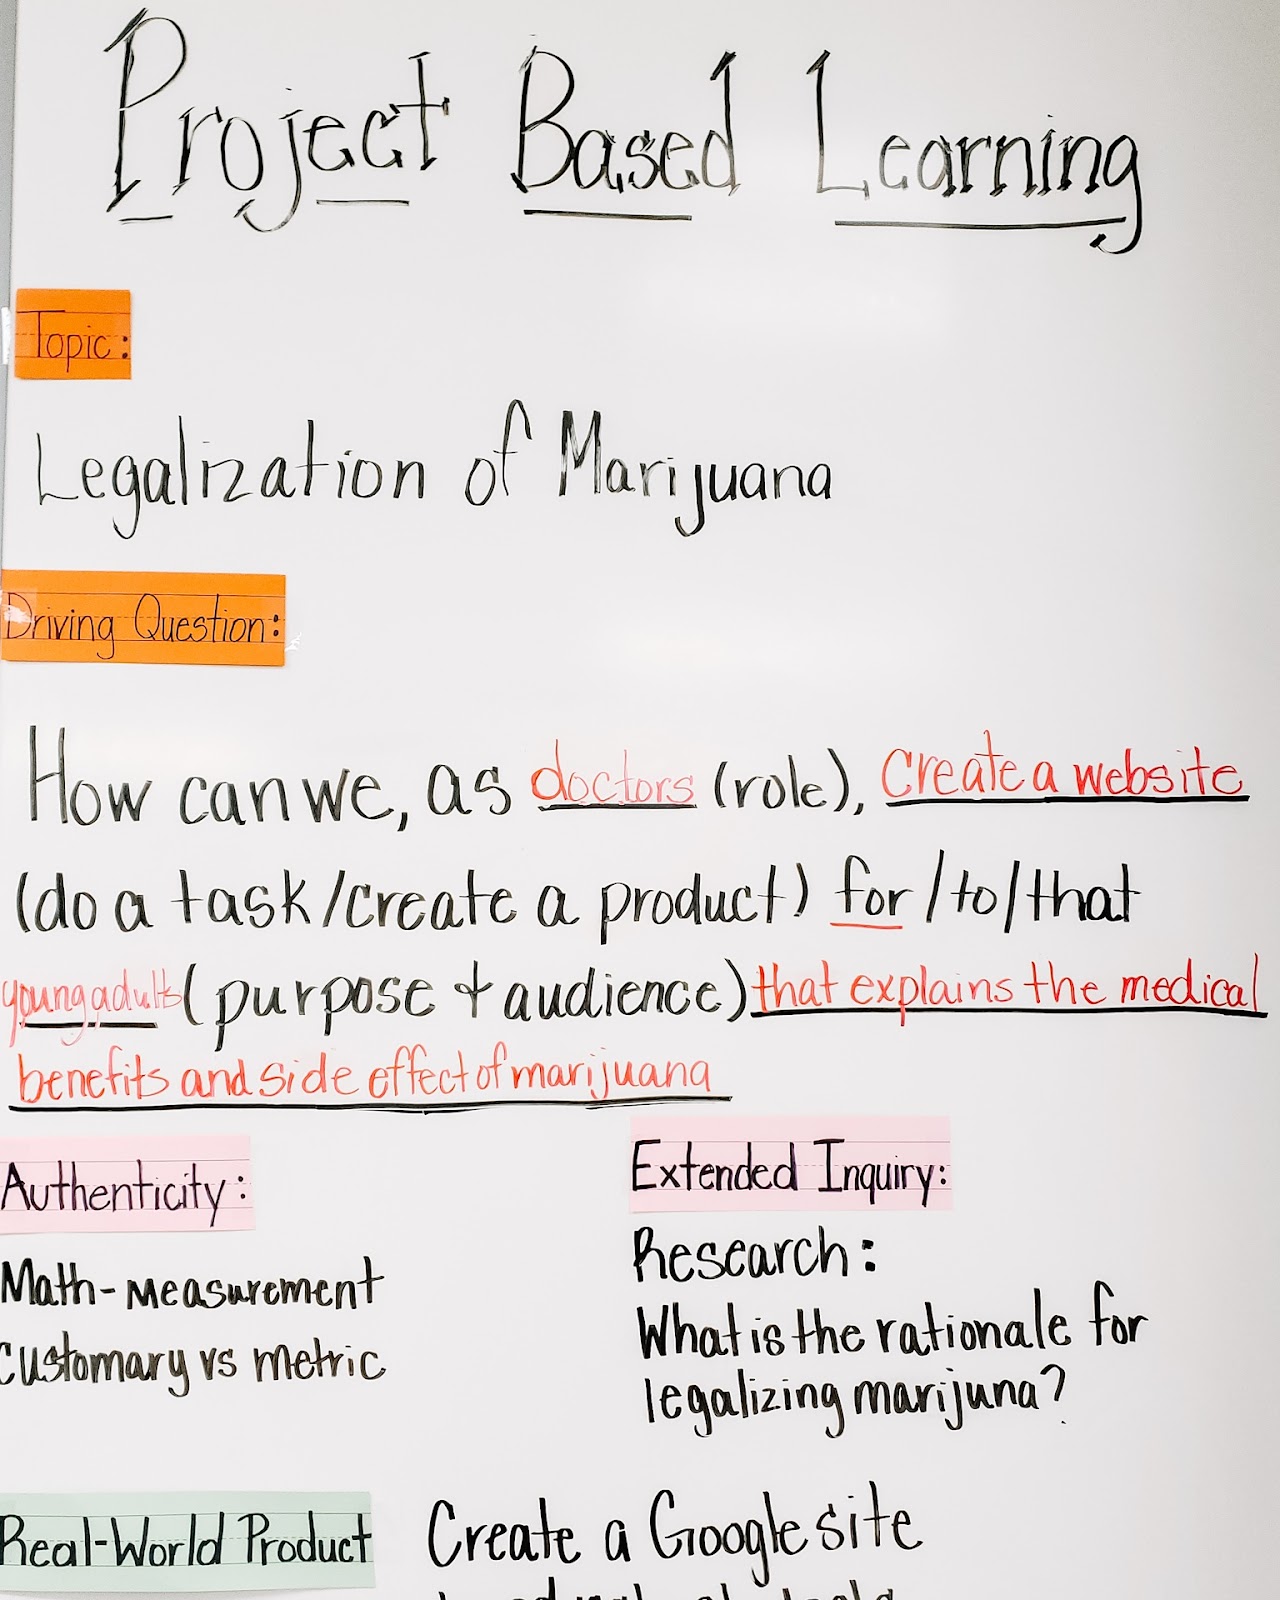 Project Based Learning
Topic:
Legalization of Marijuana
Driving Question:
How can we, as doctors (role), Create a website
(do a task/create a product) for/to/that
young adults (purpose + audience) that explains the medical
benefits and side effect of marijuana
Authenticity:
Math-measurement
customary vs metric
Extended Inquiry:
Research:
What is the rationale for
legalizing marijuna?
Real-World Product
Create a Google site